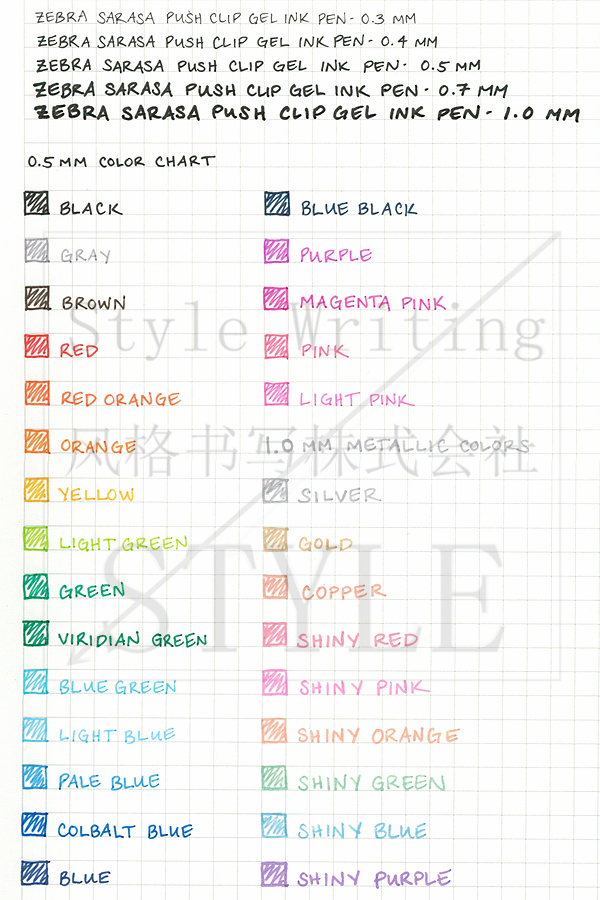 ZEBRA SARASA PUSH CLIP GEL INK PEN - 0.3 MM
ZEBRA SARASA PUSH CLIP GEL INK PEN - 0.4 MM
ZEBRA SARASA PUSH CLIP GEL INK PEN - 0.5 MM
ZEBRA SARASA PUSH CLIP GEL INK PEN - 0.7 MM
ZEBRA SARASA PUSH CLIP GEL INK PEN - 1.0 MM
0.5 MM COLOR CHART
BLACK
GRAY
BROWN
RED
RED ORANGE
ORANGE
YELLOW
LIGHT GREEN
GREEN
VIRIDIAN GREEN
BLUE GREEN
LIGHT BLUE
PALE BLUE
COLBALT BLUE
BLUE
BLUE BLACK
PURPLE
MAGENTA PINK
PINK
LIGHT PINK
1.0 MM METALLIC COLORS
SILVER
GOLD
COPPER
SHINY RED
SHINY PINK
SHINY ORANGE
SHINY GREEN
SHINY BLUE
SHINY PURPLE
Style Writing
风格书写株式会社
STYLE